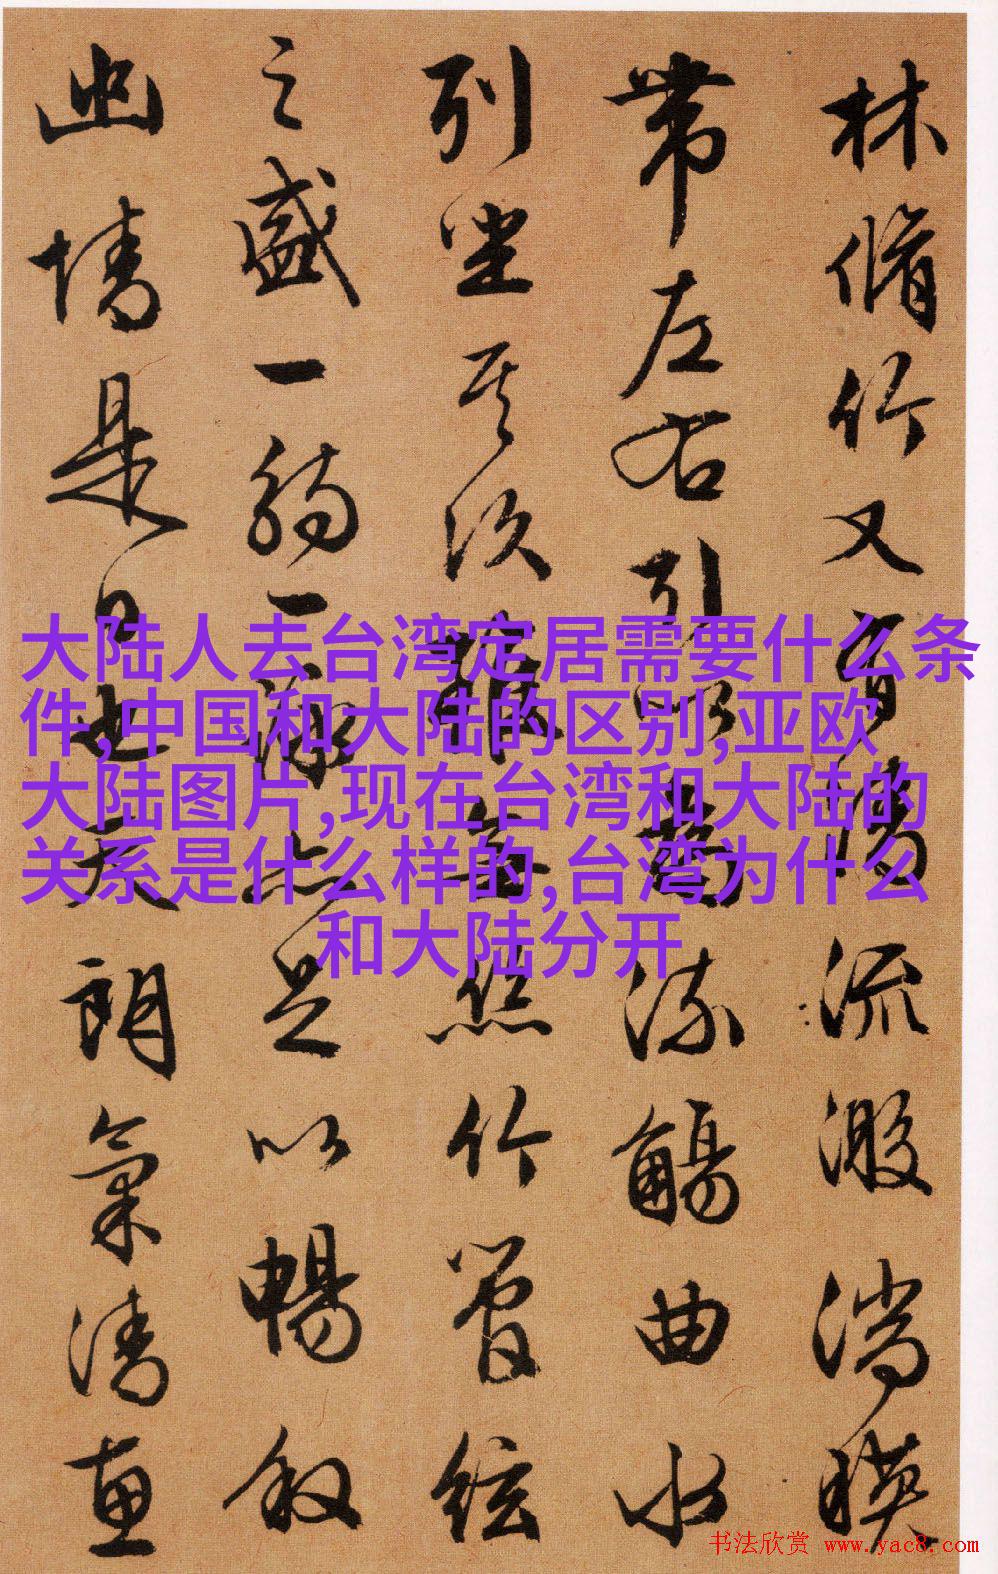 林脩竹又有清流激湍映
帶左右引以為流觴曲水
列坐其次雖無絲竹管絃
之盛一觴一詠亦足以暢叙
幽情是日也天朗氣清惠
大陆人去台湾定居需要什么条
件,中国和大陆的区别,亚欧
大陆图片,现在台湾和大陆的
关系是什么样的,台湾为什么
和大陆分开
书法欣赏 www.yac8.com